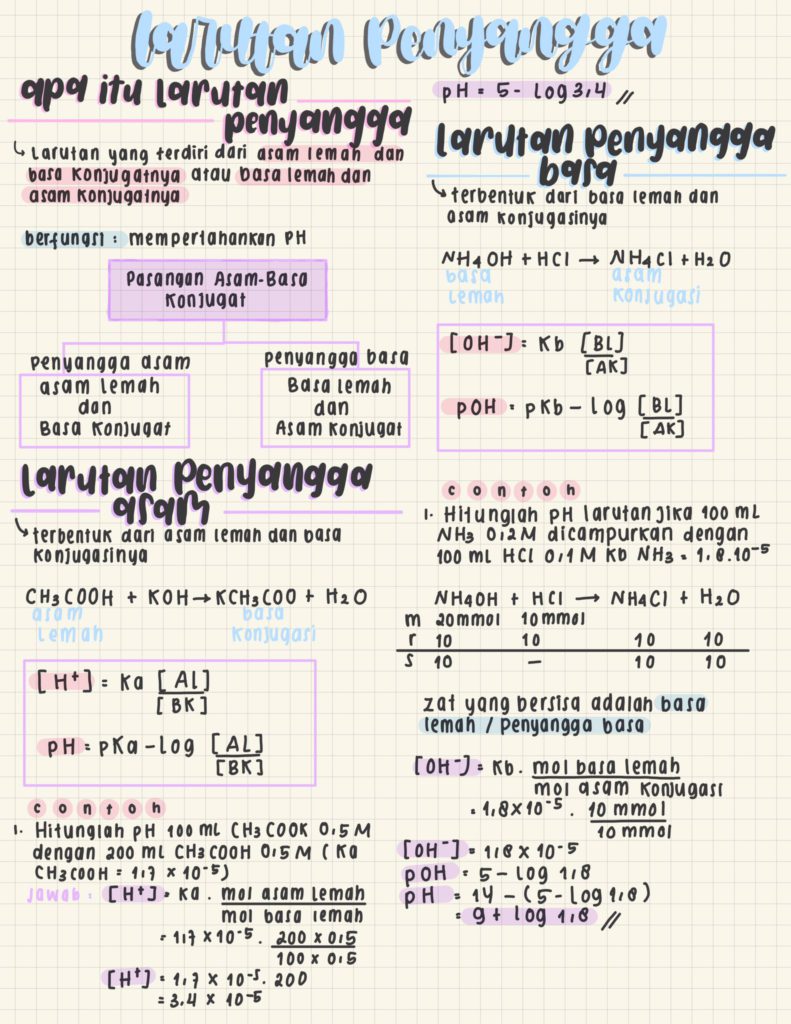 larutan Penyangga
apa itu larutan
penyangga
↳ Larutan yang terdiri dari asam lemah dan
basa konjugatnya atau basa lemah dan
asam konjugatnya
berfungsi : mempertahankan PH
Pasangan Asam-Basa
Konjugat
Penyangga asam
asam lemah
dan
Basa Konjugat
penyangga basa
Basa lemah
dan
Asam Konjugat
larutan Penyangga
asam
↳ terbentuk dari asam lemah dan basa
konjugasinya
CH3COOH + KOH → KCH3COO + H2O
asam
lemah
basa
konjugasi
[H+] = Ka [AL]
[BK]
pH = pKa - log [AL]
[BK]
contoh
1. Hitunglah pH 100 ml CH3COOK 0,5 M
dengan 200 ml CH3COOH 0,5 M (Ka
CH3COOH = 1,7 × 10-5)
jawab : [H+] = Ka . mol asam lemah
mol basa lemah
= 1,7 × 10-5 . 200 × 0,5
100 × 0,5
[H+] = 1,7 × 10-5 . 200
= 3,4 × 10-5
pH = 5 - log 3,4 //
larutan Penyangga
basa
↳ terbentuk dari basa lemah dan
asam konjugasinya
NH4OH + HCl → NH4Cl + H2O
basa
lemah
asam
konjugasi
[OH-] = Kb [BL]
[AK]
pOH = pKb - log [BL]
[AK]
contoh
1. Hitunglah pH larutan jika 100 mL
NH3 0,2M dicampurkan dengan
100 ml HCl 0,1 M Kb NH3 = 1,8.10-5
NH4OH + HCl → NH4Cl + H2O
m 20mmol 10mmol
r 10 10 10 10
s 10 - 10 10
zat yang bersisa adalah basa
lemah / penyangga basa
[OH-] = Kb. mol basa lemah
mol asam konjugasi
= 1,8×10-5 . 10 mmol
10 mmol
[OH-] = 1,8 × 10-5
pOH = 5 - log 1,8
pH = 14 - (5-log 1,8)
= 9 + log 1,8 //